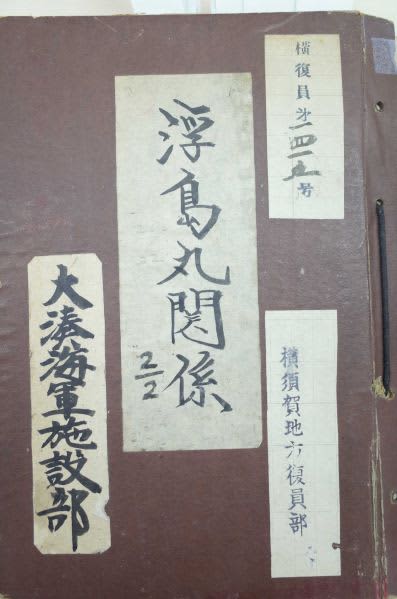 横復員第一四一五号
横須賀地方復員部
浮島丸関係
2/2
大湊海軍施設部